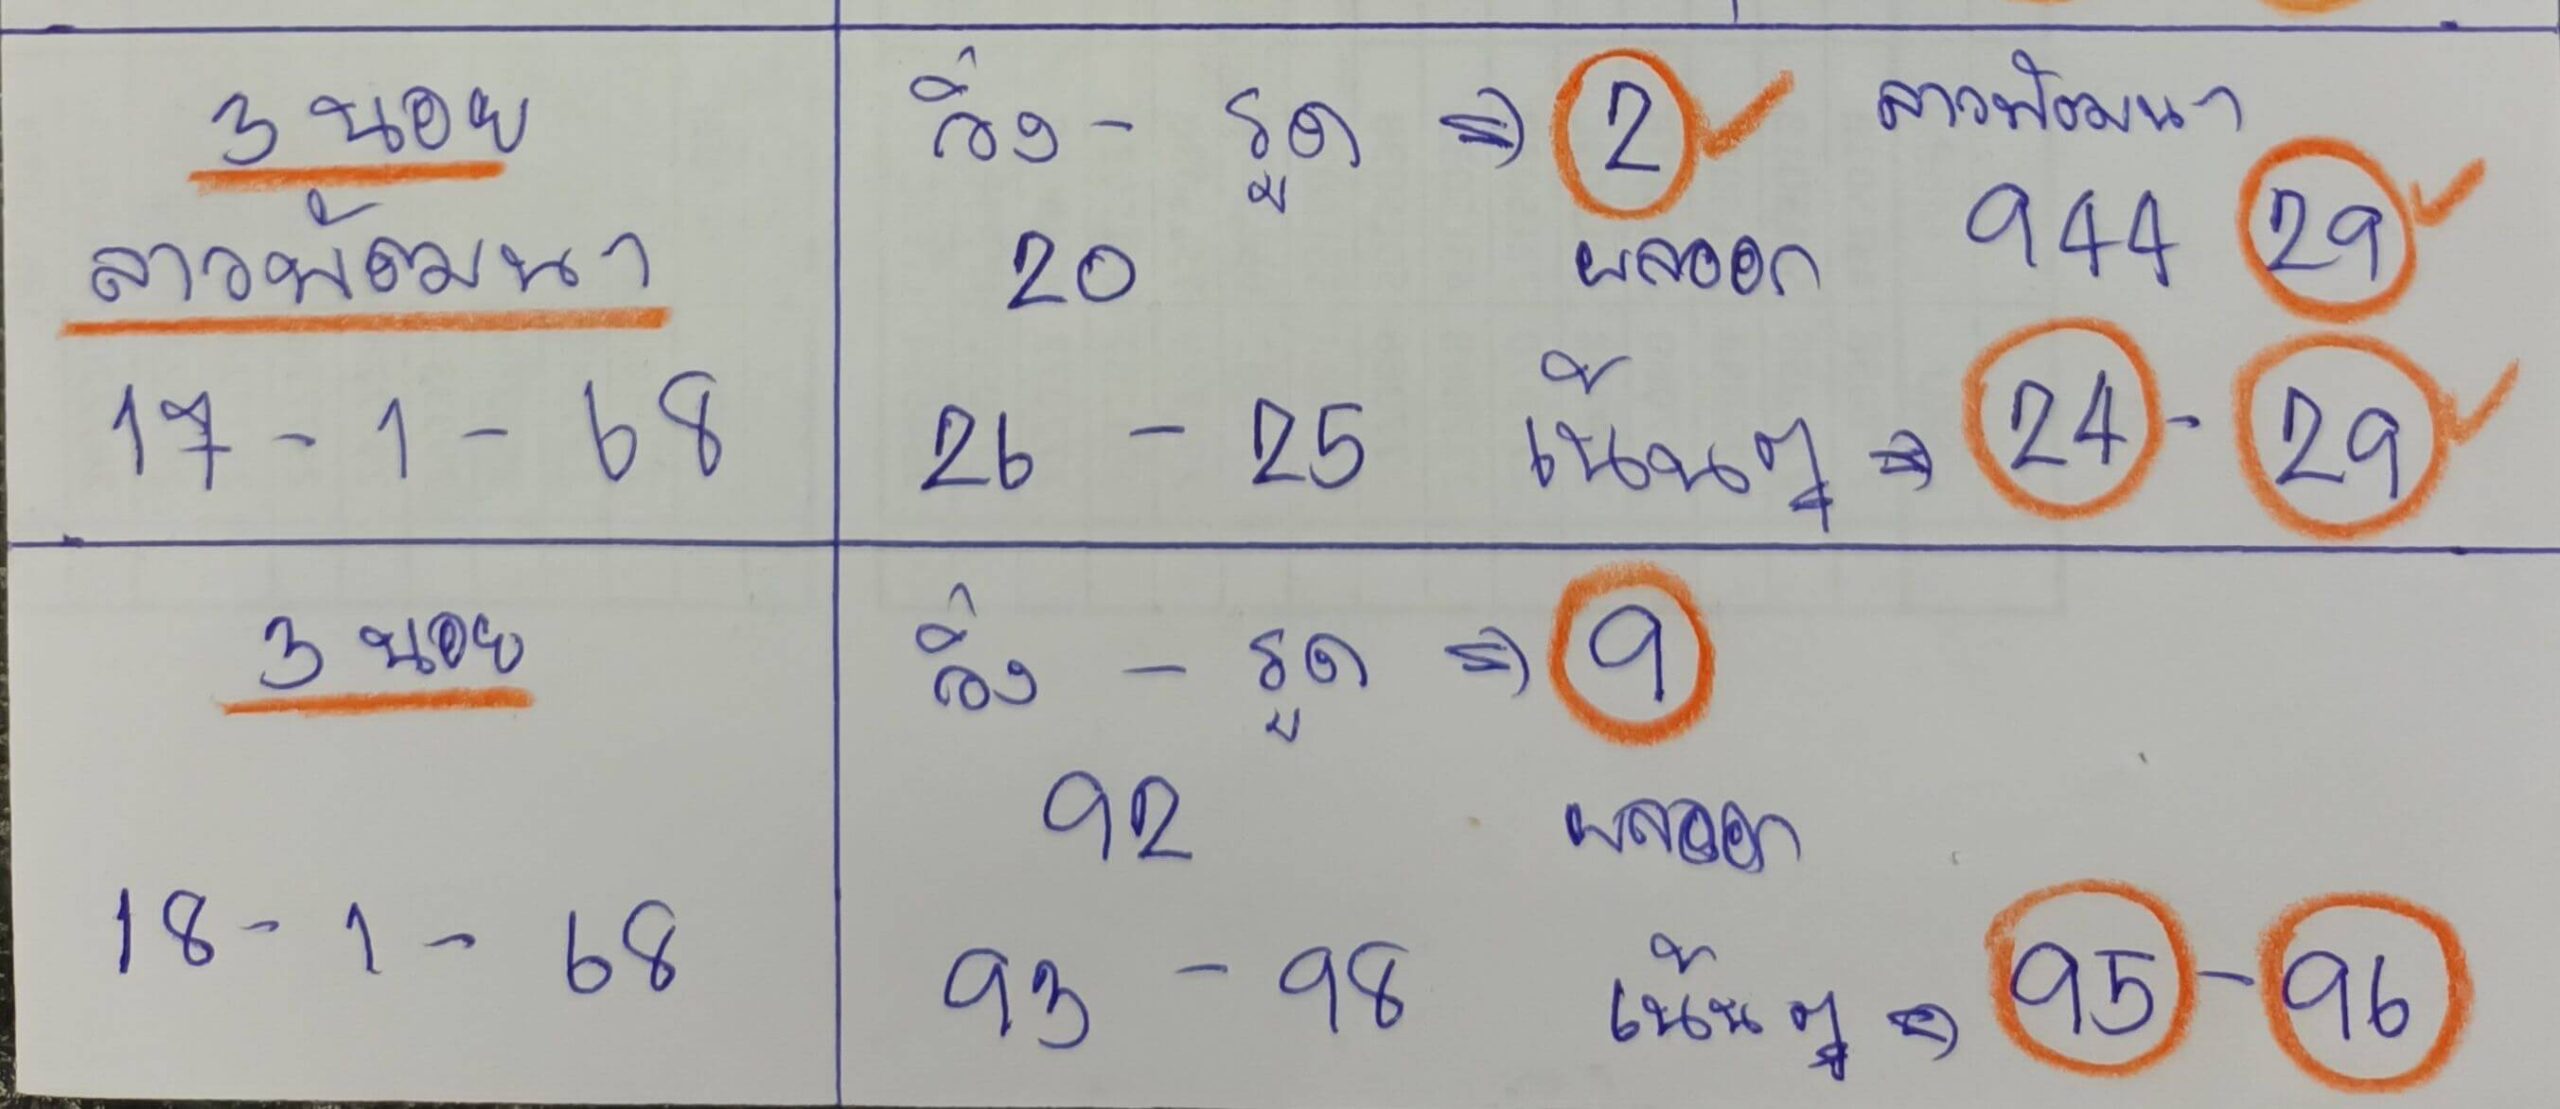 3 นอย
ลาวพัฒนา
17 - 1 - 68
วิ่ง - รูด ⇒ 2 ✓ ลาวพัฒนา
20 ผลออก 944 29 ✓
26 - 25 เน้นๆ ⇒ 24 - 29 ✓
3 นอย
18 - 1 - 68
วิ่ง - รูด ⇒ 9
92 ผลออก
93 - 98 เน้นๆ ⇒ 95 - 96